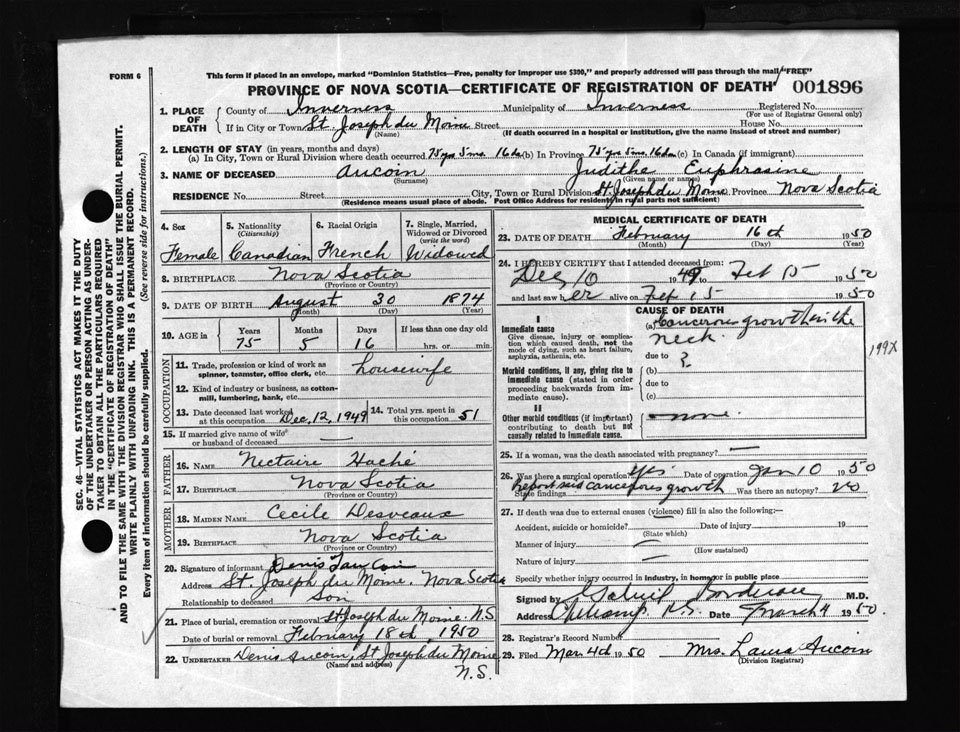 FORM 6
This form if placed in an envelope, marked "Dominion Statistics—Free, penalty for improper use $300," and properly addressed will pass through the mail "FREE"
PROVINCE OF NOVA SCOTIA—CERTIFICATE OF REGISTRATION OF DEATH 001896
1. PLACE OF DEATH
County of Inverness Municipality of Inverness Registered No.
(For use of Registrar General only)
If in City or Town St. Joseph du Moine Street House No.
(Name) (If death occurred in a hospital or institution, give the name instead of street and number)
2. LENGTH OF STAY (in years, months and days)
(a) In City, Town or Rural Division where death occurred 75 yrs 5 ms. 16 da (b) In Province 75 yrs 5 ms. 16 da (c) In Canada (if immigrant)
3. NAME OF DECEASED Aucoin Judithe Euphrasine
(Surname) (Given name or names)
RESIDENCE No. Street City, Town or Rural Division St. Joseph du Moine Province Nova Scotia
(Residence means usual place of abode. Post Office Address for residents in rural parts not sufficient)
4. Sex
Female
5. Nationality
(Citizenship)
Canadian
6. Racial Origin
French
7. Single, Married, Widowed or Divorced
(write the word)
Widowed
8. BIRTHPLACE Nova Scotia
(Province or Country)
9. DATE OF BIRTH August 30 1874
(Month) (Day) (Year)
10. AGE in
Years Months Days If less than one day old
75 5 16 hrs. or min.
OCCUPATION
11. Trade, profession or kind of work as
spinner, teamster, office clerk, etc. housewife
12. Kind of industry or business, as cotton-
mill, lumbering, bank, etc.
13. Date deceased last worked
at this occupation Dec, 12, 1949
14. Total yrs. spent in
this occupation 51
15. If married give name of wife
or husband of deceased —
FATHER
16. NAME Nectaire Haché
17. BIRTHPLACE Nova Scotia
(Province or Country)
MOTHER
18. MAIDEN NAME Cecile Desveaux
19. BIRTHPLACE Nova Scotia
(Province or Country)
20. Signature of informant Denis
Address St. Joseph du Moine. Nova Scotia
Relationship to deceased Son
21. Place of burial, cremation or removal St Joseph du Moine N.S.
Date of burial or removal February 18th, 1950
22. UNDERTAKER Denis Aucoin, St Joseph du Moine
(Name and address) N.S.
MEDICAL CERTIFICATE OF DEATH
23. DATE OF DEATH February 16th 1950
(Month) (Day) (Year)
24. I HEREBY CERTIFY that I attended deceased from:
Dec 10 1949 to Feb 15 1950
and last saw her alive on Feb 15 1950
CAUSE OF DEATH
I
Immediate cause
Give disease, injury or complication which caused death, not the mode of dying, such as heart failure, asphyxia, asthenia, etc.
(a) Cancerous growth in the
neck.
due to ?
199X
Morbid conditions, if any, giving rise to immediate cause (stated in order proceeding backwards from immediate cause).
(b)
due to
(c)
II
Other morbid conditions (if important) contributing to death but not causally related to immediate cause.
none.
25. If a woman, was the death associated with pregnancy? —
26. Was there a surgical operation? Yes Date of operation Jan 10 1950
State findings Report said cancerous growth Was there an autopsy? no
27. If death was due to external causes (violence) fill in also the following:—
Accident, suicide or homicide? Date of injury 19
(State which)
Manner of injury —
(How sustained)
Nature of injury —
Specify whether injury occurred in industry, in home or in public place
Signed by M.D.
Address N.S. Date March 4 1950.
28. Registrar's Record Number
29. Filed Mar 4th 1950 Mrs. Laura Aucoin
(Division Registrar)
SEC. 46—VITAL STATISTICS ACT MAKES IT THE DUTY
OF THE UNDERTAKER OR PERSON ACTING AS UNDER-
TAKER TO OBTAIN ALL THE PARTICULARS REQUIRED
IN THE "CERTIFICATE OF REGISTRATION OF DEATH"
AND TO FILE THE SAME WITH THE DIVISION REGISTRAR WHO SHALL ISSUE THE BURIAL PERMIT.
WRITE PLAINLY WITH UNFADING INK. THIS IS A PERMANENT RECORD.
Every item of information should be carefully supplied. (See reverse side for instructions.)